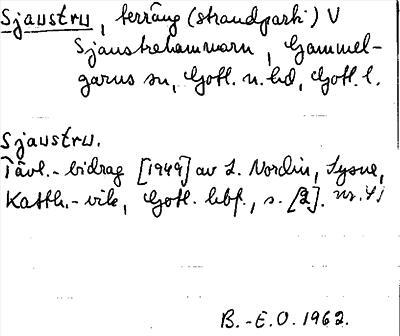 Sjaustru, terräng (strandparti) V
Sjaustrehammarn, Gammel-
garns sn, Gotl. n. hd, Gotl. l.
Sjaustru.
Tävl.-bidrag [1949] av L. Nordin, Sysne,
Katth.-vik, Gotl. hbf., s. [2]. nr. 41
B.-E.O. 1962.